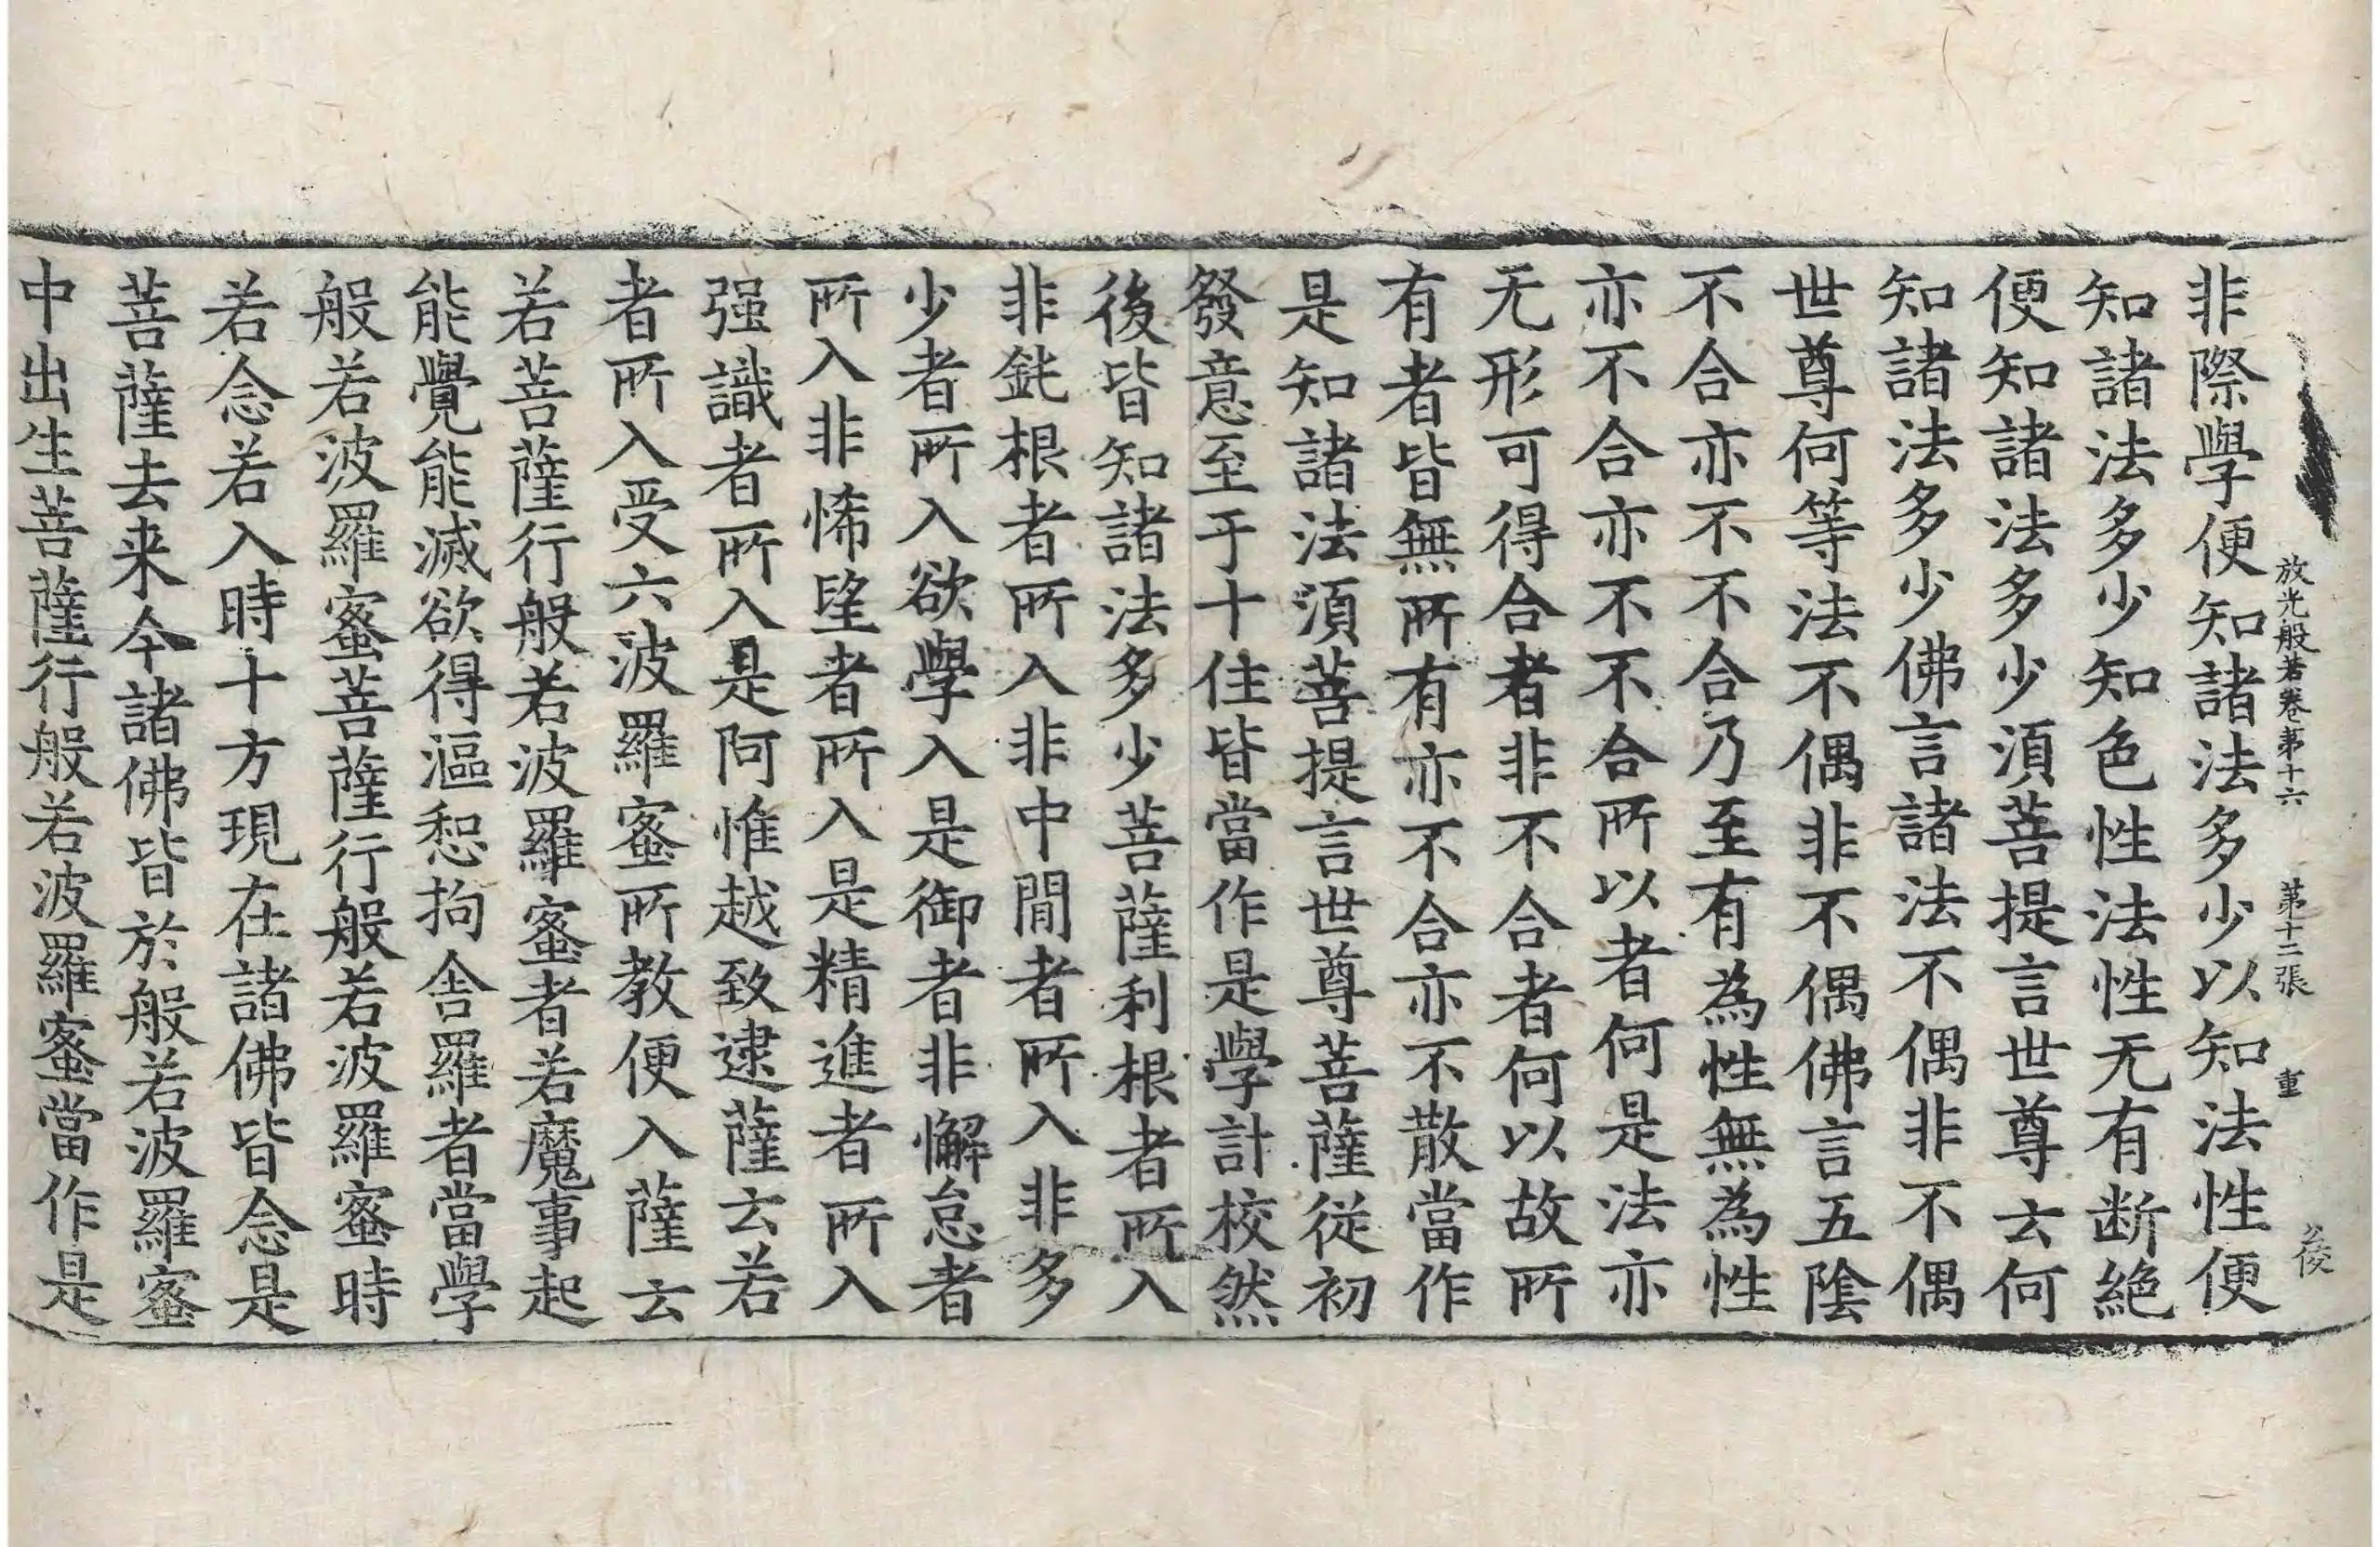 放光般若卷第十六　第十二張　重
非際學便知諸法多少以知法性便
知諸法多少知色性法性无有断絶
便知諸法多少湏菩提言世尊云何
知諸法多少佛言諸法不偶非不偶
世尊何等法不偶非不偶佛言五陰
不合亦不不合乃至有為性無為性
亦不合亦不不合所以者何是法亦
无形可得合者非不合者何以故所
有者皆無所有亦不合亦不散當作
是知諸法湏菩提言世尊菩薩從初
發意至于十住皆當作是學計校然
後皆知諸法多少菩薩利根者所入
非鈋根者所入非中閒者所入非多
少者所入欲學入是御者非懈怠者
所入非悕望者所入是精進者所入
强識者所入是阿惟越致逮薩云若
者所入受六波羅蜜所教便入薩云
若菩薩行般若波羅蜜者若魔事起
能覺能滅欲得漚惒拘舍羅者當學
般若波羅蜜菩薩行般若波羅蜜時
若念若入時十方現在諸佛皆念是
菩薩去来今諸佛皆於般若波羅蜜
中出生菩薩行般若波羅蜜當作是